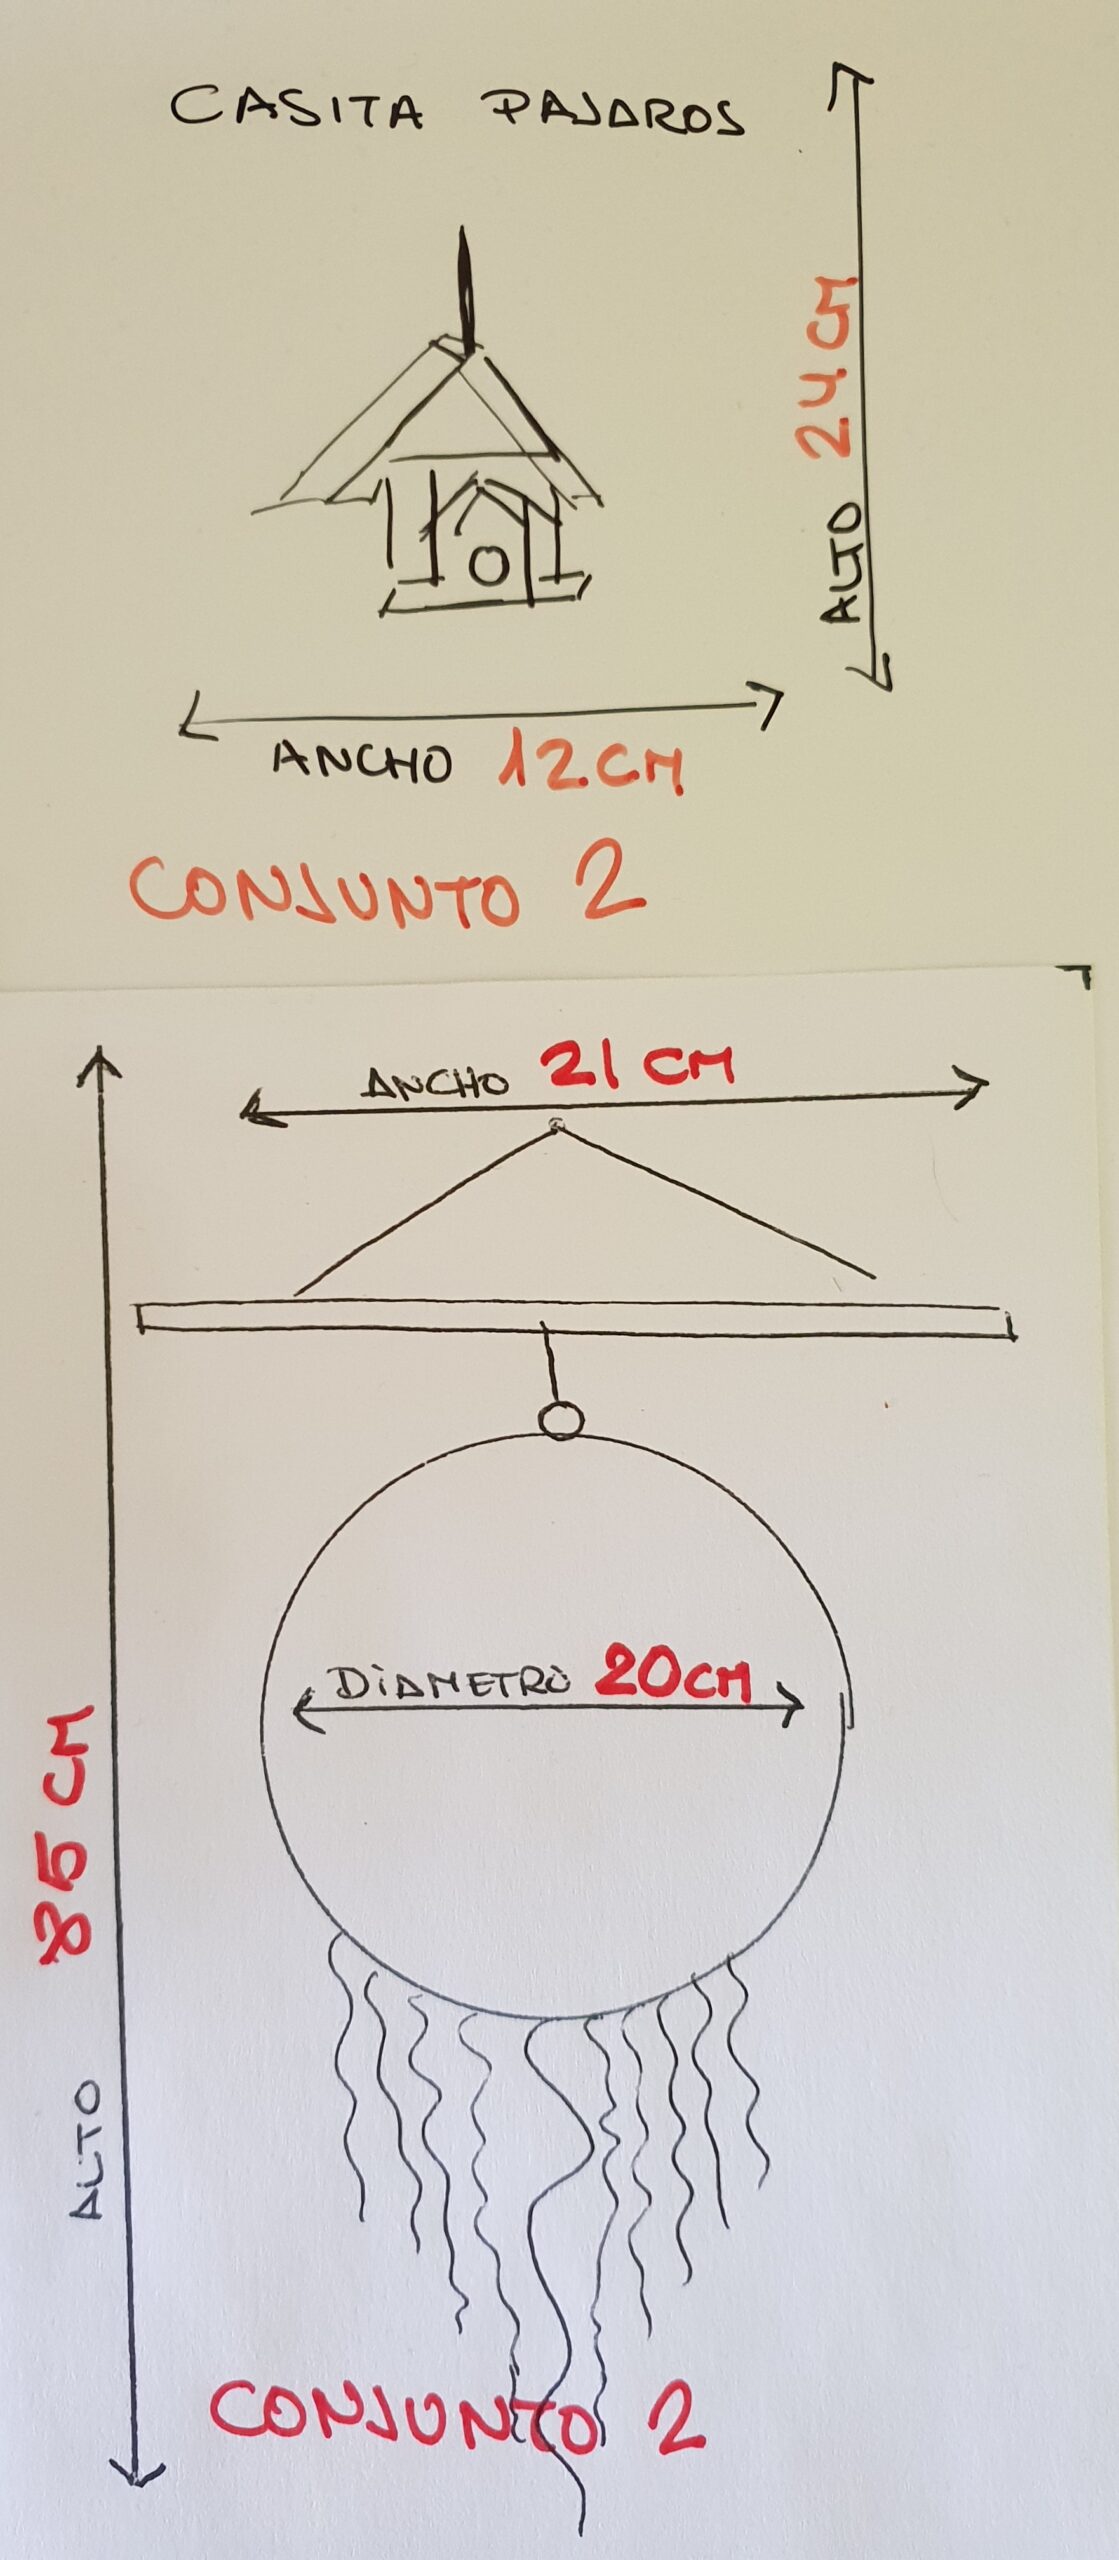 CASITA PAJAROS
ALTO 24 CM
ANCHO 12 CM
CONJUNTO 2
ANCHO 21 CM
DIAMETRO 20 CM
ALTO 85 CM
CONJUNTO 2